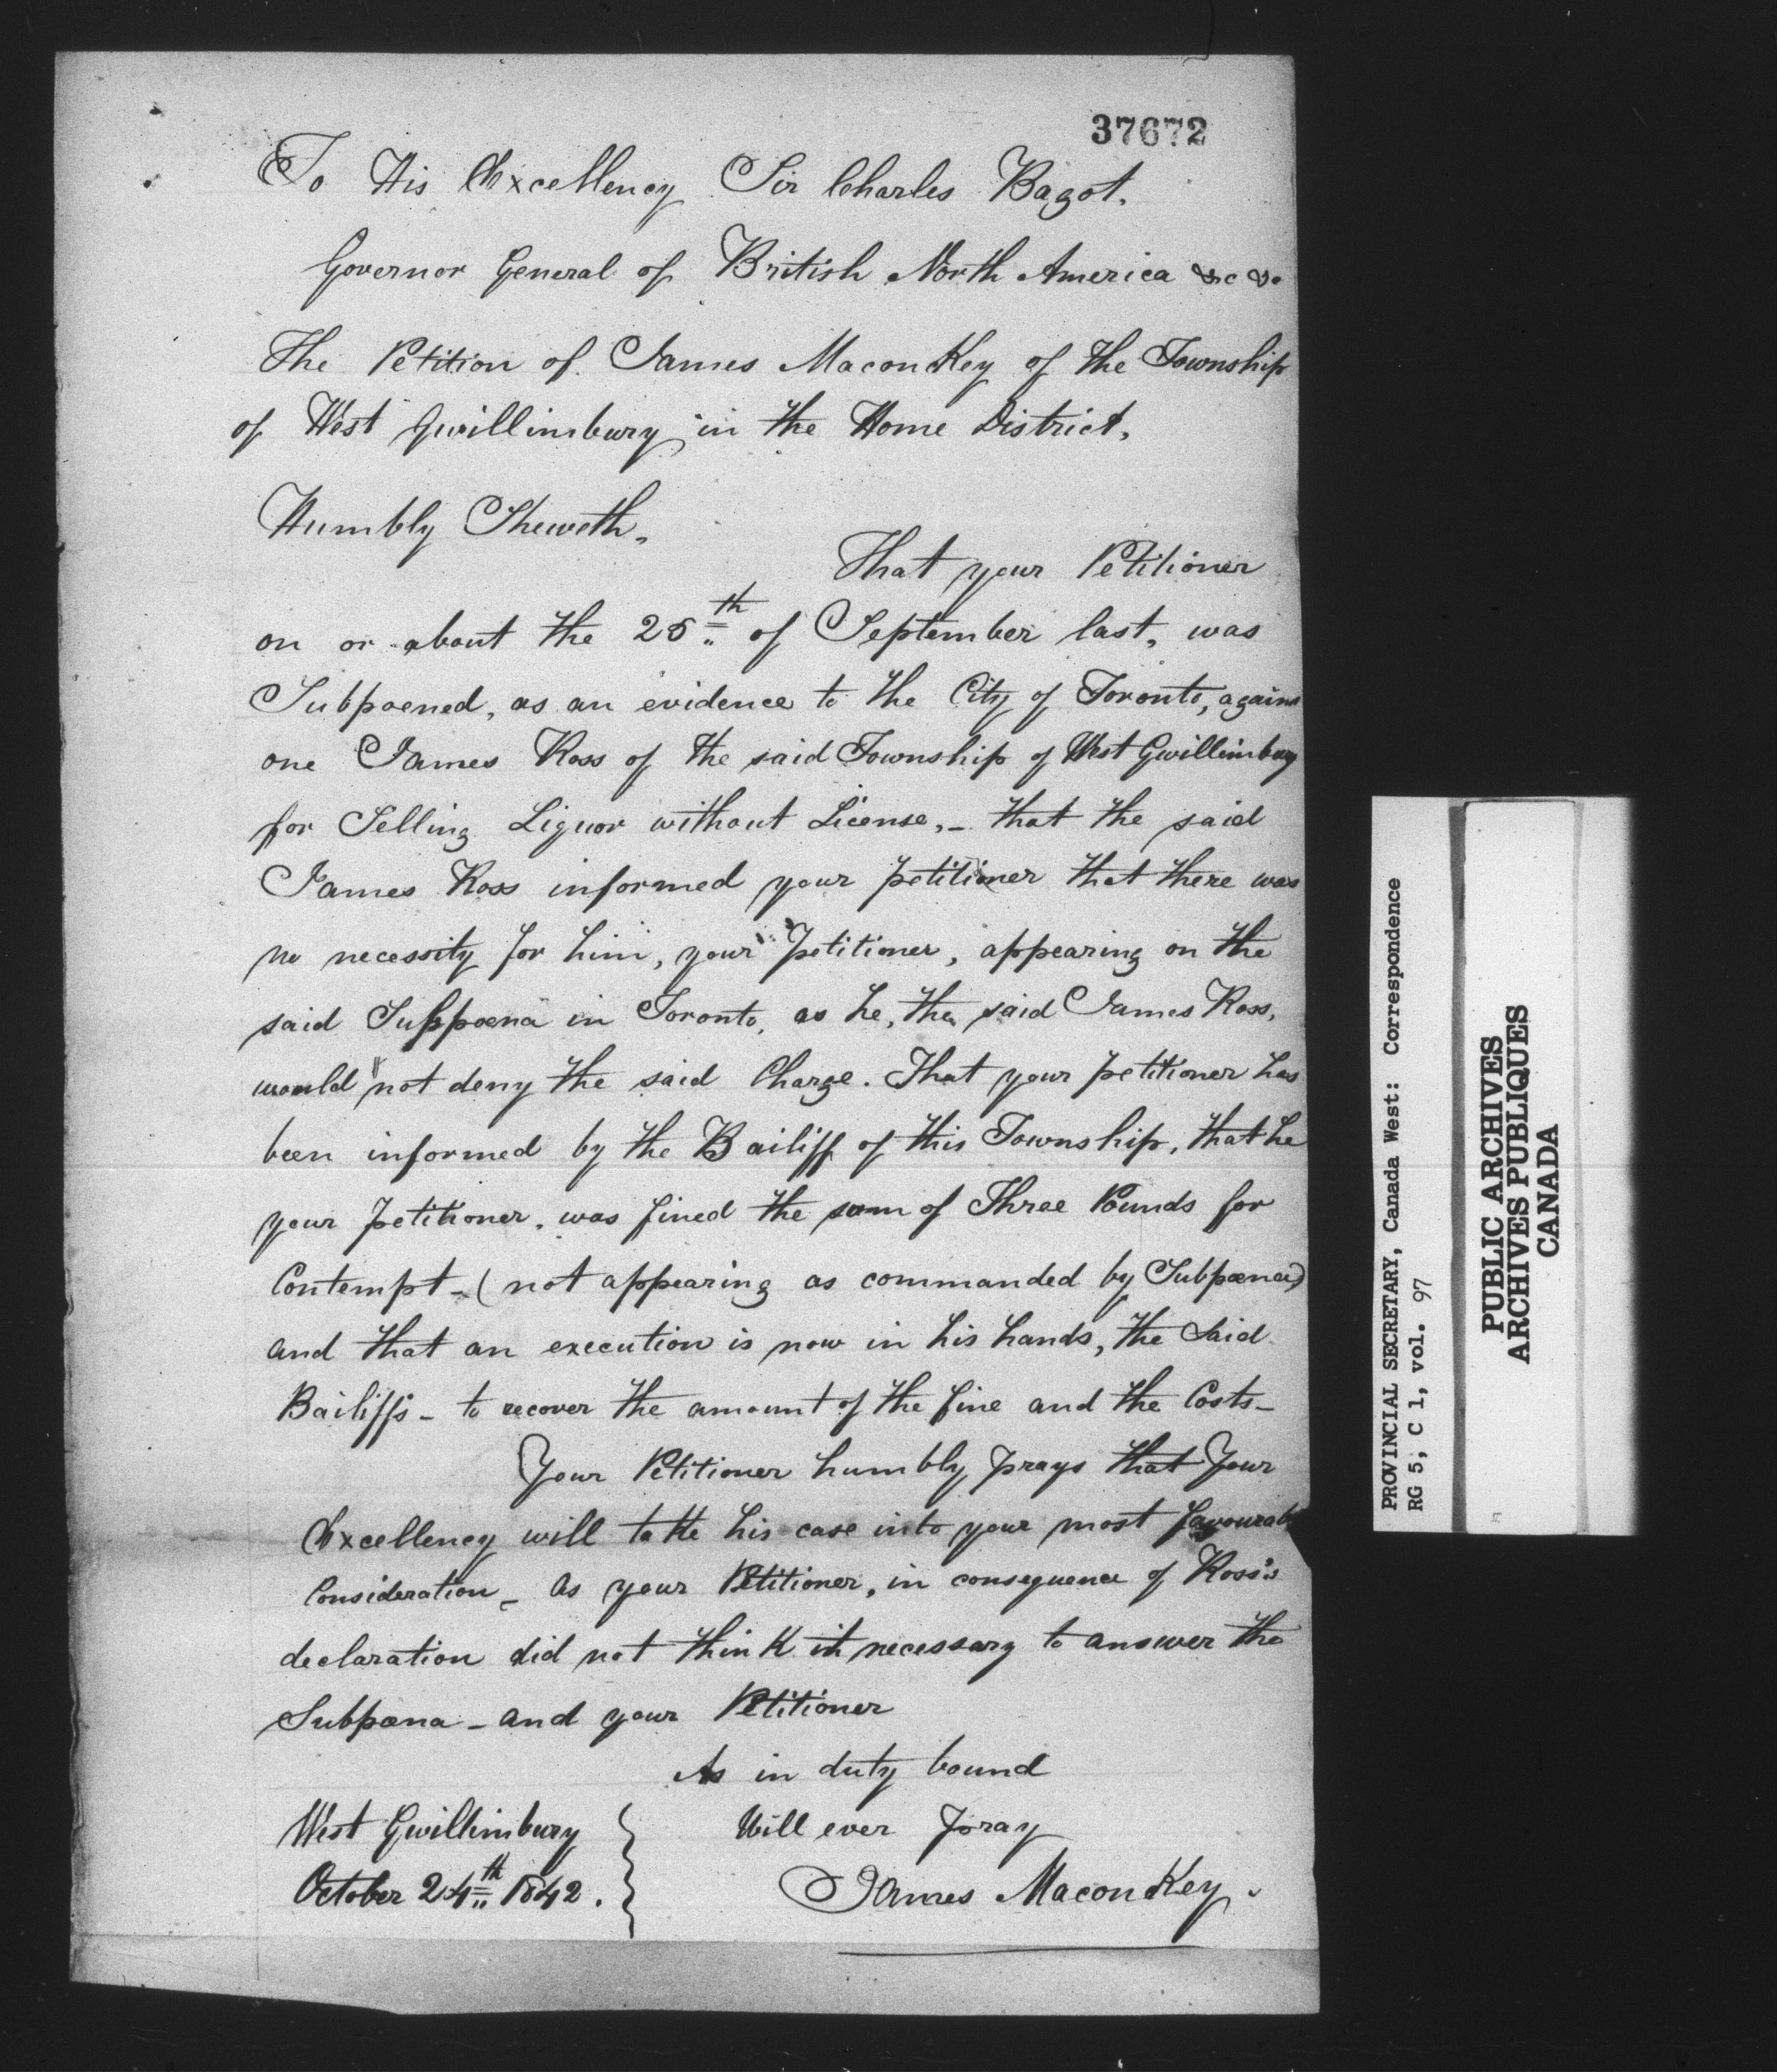 37672
To His Excellency Sir Charles Bagot.
Governor General of British North America &c &c
The Petition of James Maconkey of the Township
of West Gwillimbury in the Home District,
Humbly Sheweth,
That your Petitioner
on or about the 25th of September last, was
Subpoened, as an evidence to the City of Toronto, agains
one James Ross of the said Township of West Gwillimbury
for Selling Liquor without License,- that the said
James Ross informed your petitioner that there was
no necessity for him, your Petitioner, appearing on the
said Suppoena in Toronto, as he, the said James Ross,
would not deny the said Charge. That your petitioner has
been informed by the Bailiff of this Township, that he
your petitioner, was fined the sum of Three Pounds for
Contempt - (not appearing as commanded by Subpoena)
and that an execution is now in his hands, the Said
Bailiffs - to recover the amount of the fine and the Costs -
Your Petitioner humbly prays that Your
Excellency will take his case into your most favourabl
Consideration - As your Petitioner, in consequence of Ross's
declaration did not think it necessary to answer the
Subpoena - and your Petitioner
As in duty bound
Will ever pray
James Maconkey.
West Gwillimbury
October 24th 1842.
PROVINCIAL SECRETARY, Canada West: Correspondence
RG 5, C 1, vol. 97
PUBLIC ARCHIVES
ARCHIVES PUBLIQUES
CANADA